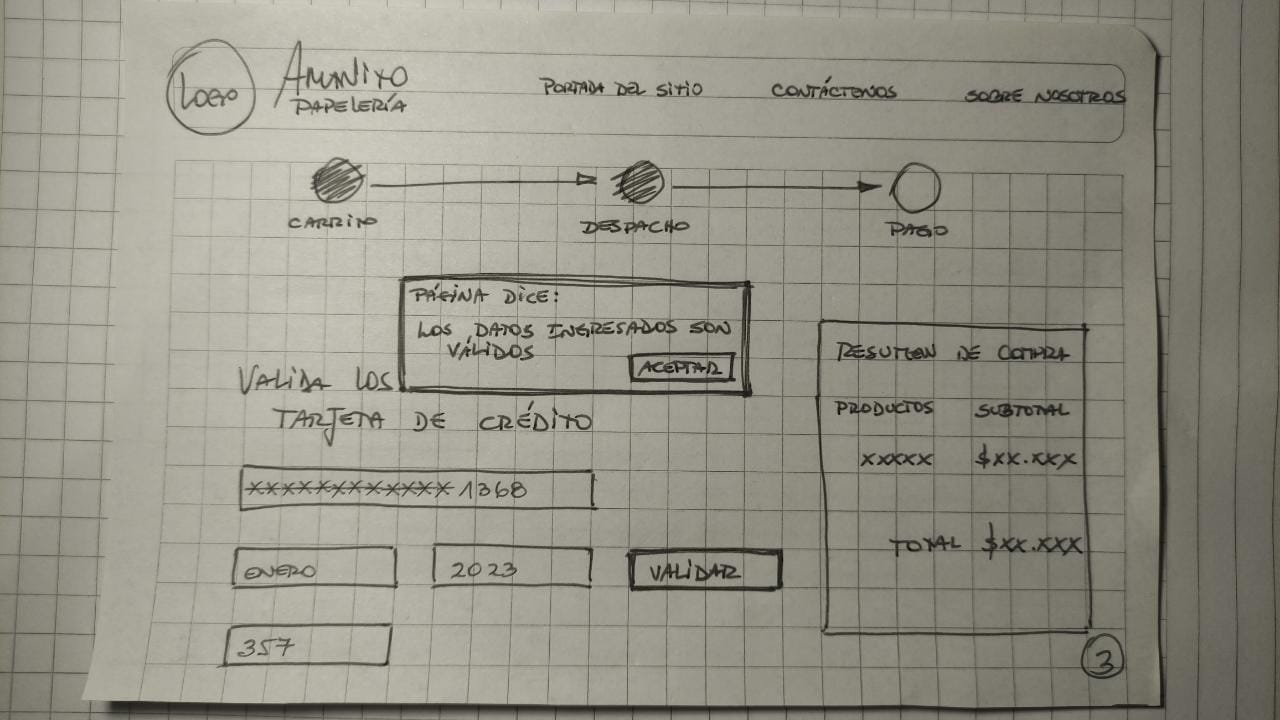 LOGO
AMUNITO
PAPELERÍA
PORTADA DEL SITIO
CONTÁCTENOS
SOBRE NOSOTROS
CARRITO
DESPACHO
PAGO
PÁGINA DICE:
LOS DATOS INGRESADOS SON
VÁLIDOS
ACEPTAR
VALIDA LOS
TARJETA DE CRÉDITO
XXXXXXXXXXXX 1368
ENERO
2023
VALIDAR
357
RESUMEN DE COMPRA
PRODUCTOS SUBTOTAL
XXXXX $XX.XXX
TOTAL $XX.XXX
3